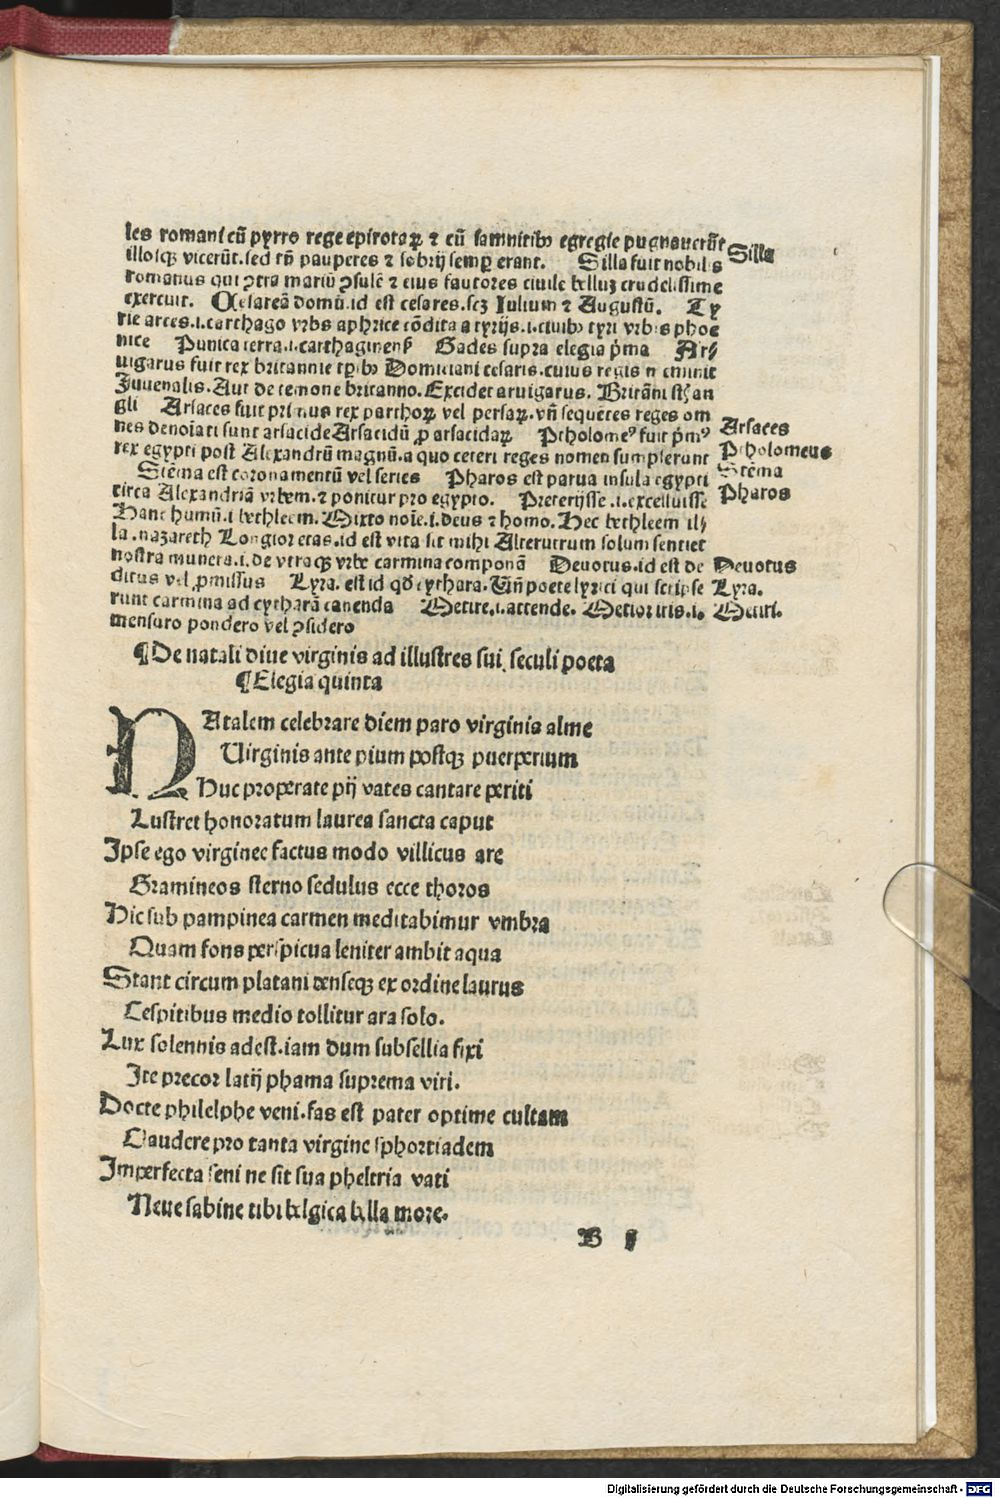 les romani cū pyrro rege epirotaꝝ ⁊ cū samnitibꝰ egregie pugnauerūt
illosqꝫ vicerūt.sed tn̄ pauperes ⁊ sobrij semꝑ erant. Silla fuit nobilis
Silla
romanus qui ꝯtra mariū ꝯsulē ⁊ eius fautores ciuile bellūꝫ crudelissime
exercuit. Cesareā domū.id est cesares.scꝫ Iulium ⁊ Augustū. Ty
rie arces.i.carthago vrbs aphrice cōdita a tyrijs.i.ciuibꝰ tyri vrbis phoe
nice Punica terra.i.carthaginensꝭ Gades supra elegia p̄ma Ar⸗
uigarus fuit rex britannie tꝑibꝰ Domiciani cesaris.cuius regis meminit
Juuenalis.Aut de temone britanno.Excidet aruigarus. Britāni st̄ an
gli Arsaces fuit primus rex parthoꝝ vel persaꝝ.vn̄ sequētes reges om
nes denoiati sunt arsacide Arsacidū ꝓ arsacidaꝝ Ptholomeꝰ fuit p̄mꝰ
Arsaces
rex egypti post Alexandrū magnū.a quo ceteri reges nomen sumpserunt
Ptholomeus
Stēma est coronamentū vel series Pharos est parua insula egypti
Stēma
circa Alexandriā vrbem.⁊ ponitur pro egypto. Preterijsse.i.excelluisse
Pharos
Hanc humū.i bethleem. Mixto noīe.i.deus ⁊ homo. Hec bethleem il⸗
la.nazareth Longior etas.id est vita sit mihi Alterutrum solum sentiet
nostra munera.i.de vtraqꝫ vrbe carmina componā Deuotus.id est de
Deuotus
ditus vel ꝓmissus Lyra. est id qd̄ cythara. Vn̄ poete lyrici qui scripse
Lyra.
runt carmina ad cytharā canenda Metire.i.attende. Metior iris.i.
Metiri.
mensuro pondero vel ꝯsidero
¶De natali diue virginis ad illustres sui seculi poeta
¶Elegia quinta
NAtalem celebrare diem paro virginis alme
Uirginis ante pium postqꝫ puerperium
Huc properate pij vates cantare periti
Lustret honoratum laurea sancta caput
Ipse ego virginee factus modo villicus are
Gramineos sterno sedulus ecce thoros
Hic sub pampinea carmen meditabimur vmbra
Quam fons perspicua leniter ambit aqua
Stant circum platani denseqꝫ ex ordine laurus
Cespitibus medio tollitur ara solo.
Lux solennis adest.iam dum subsellia fixi
Ite precor latij phama suprema viri.
Docte philelphe veni.fas est pater optime cultam
Claudere pro tanta virgine sphortiadem
Imperfecta seni ne sit sua pheltria vati
Neue sabine tibi belgica bella more.
B j
Digitalisierung gefördert durch die Deutsche Forschungsgemeinschaft - DFG